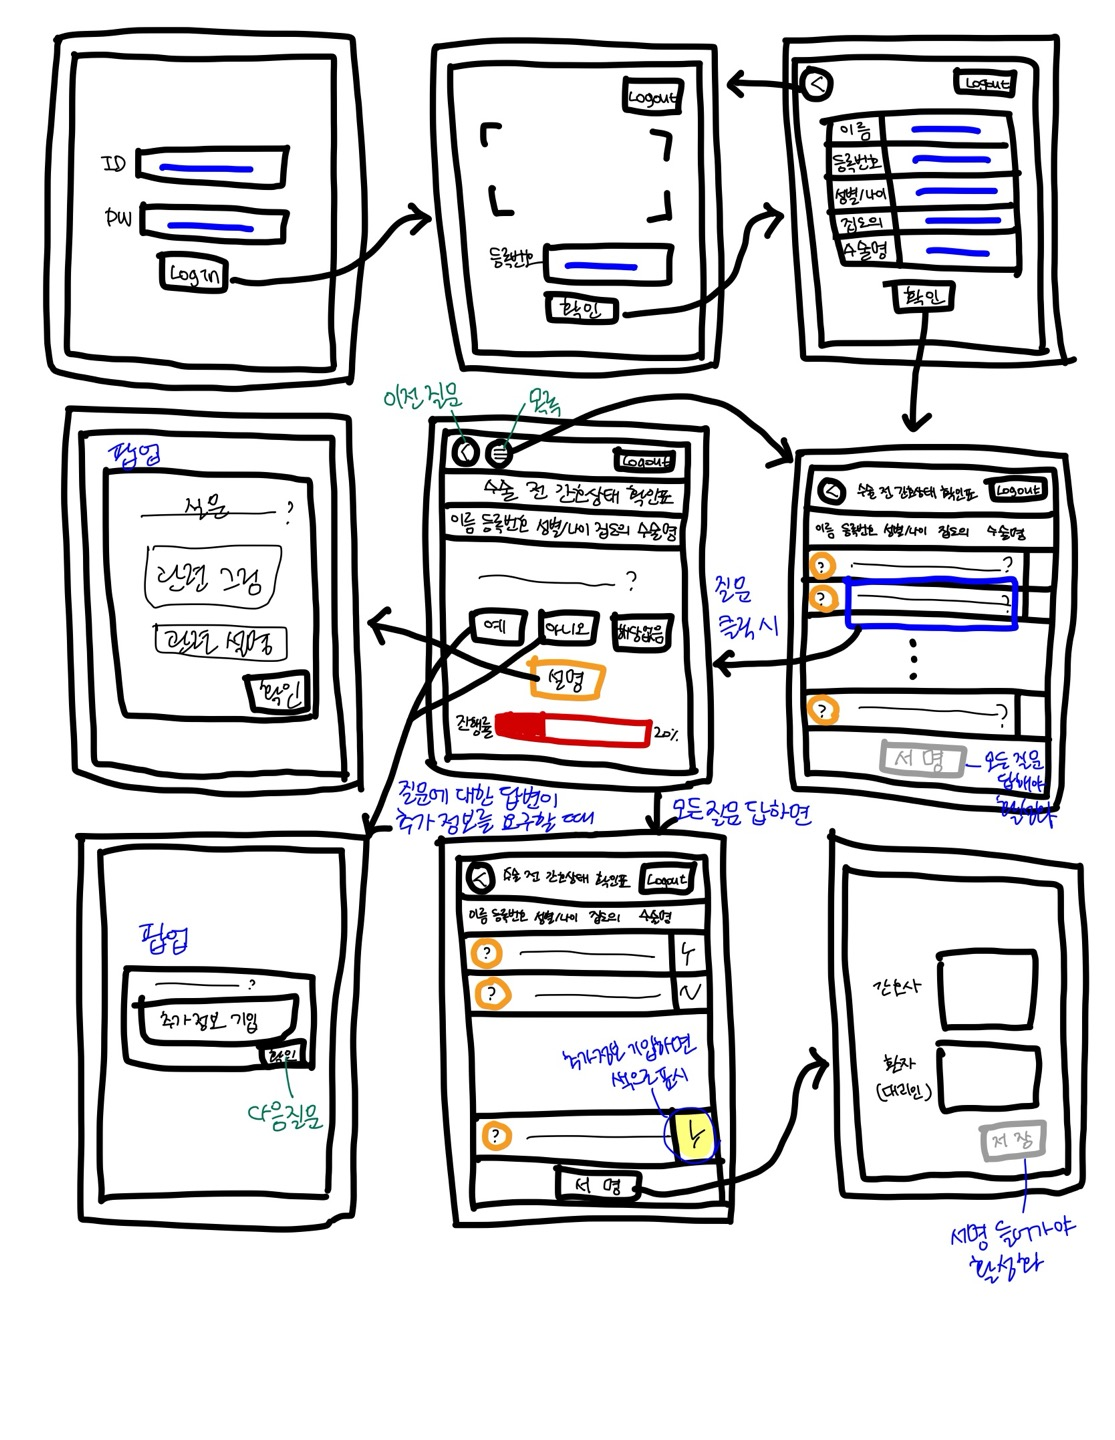 ID
PW
Login
Logout
등록번호
확인
<
Logout
이름
등록번호
성별/나이
집도의
수술명
확인
팝업
질문 ?
관련 그림
관련 설명
확인
이전 질문
목록
<
Logout
수술 전 간호상태 확인표
이름 등록번호 성별/나이 집도의 수술명
?
예 아니오 해당없음
설명
진행률 20%
질문
클릭 시
< 수술 전 간호상태 확인표 Logout
이름 등록번호 성별/나이 집도의 수술명
? ?
? ?
? ?
서명
모든 질문
답해야
활성화
질문에 대한 답변이
추가 정보를 요구할 때
모든 질문 답하면
팝업
?
추가 정보 기입
확인
다음질문
< 수술 전 간호상태 확인표 Logout
이름 등록번호 성별/나이 집도의 수술명
? Y
? N
추가정보 기입하면
색으로 표시
? Y
서 명
간호사
환자
(대리인)
저장
서명 들어가야
활성화